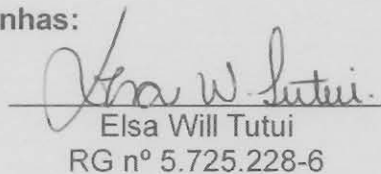 nhas:
Elsa W. Tutui.
Elsa Will Tutui
RG nº 5.725.228-6